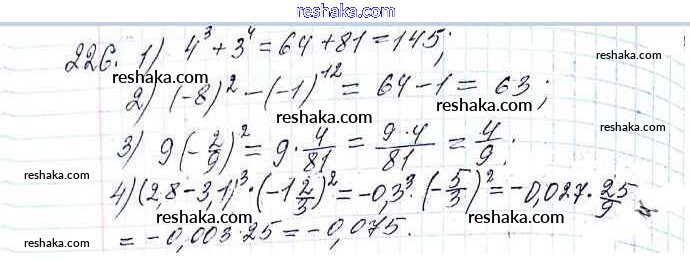 reshaka.com
226. 1) 4³ + 3⁴ = 64 + 81 = 145;
reshaka.com reshaka.com
2) (-8)² - (-1)¹² = 64 - 1 = 63;
reshaka.com reshaka.com
3) 9(-2/9)² = 9 · 4/81 = 9·4/81 = 4/9;
reshaka.com reshaka.com
4) (2,8 - 3,1)³ · (-1 2/3)² = -0,3³ · (-5/3)² = -0,027 · 25/9
reshaka.com reshaka.com
= -0,003 · 25 = -0,075.
reshaka.com reshaka.com